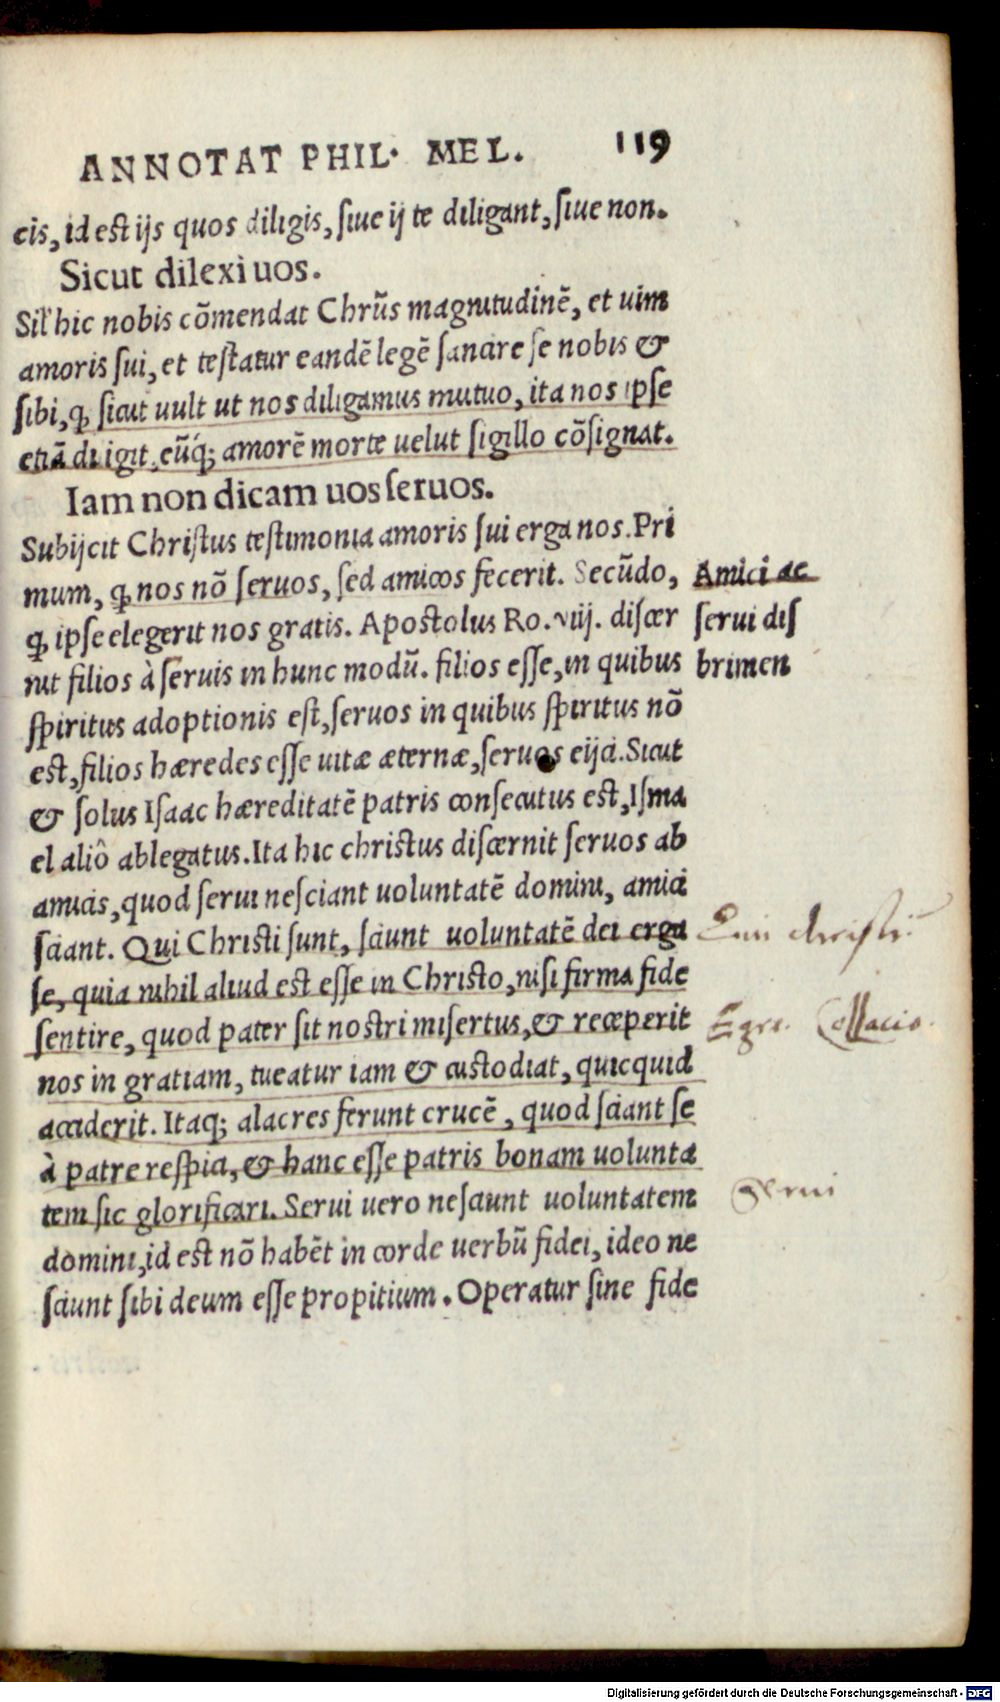 ANNOTAT PHIL. MEL. 119
cis, id est ijs quos diligis, siue ij te diligant, siue non.
Sicut dilexi uos.
Sil' hic nobis cōmendat Chrūs magnitudinē, et uim
amoris sui, et testatur eandē legē sancire se nobis &
sibi, ꝙ sicut uult ut nos diligamus mutuo, ita nos ipse
etiā diligit, eūq́; amorē morte uelut sigillo cōsignat.
Iam non dicam uos seruos.
Subijcit Christus testimonia amoris sui erga nos. Pri
mum, ꝙ nos nō seruos, sed amicos fecerit. Secūdo,
ꝙ ipse elegerit nos gratis. Apostolus Ro. viij. discer
nit filios à seruis in hunc modū. filios esse, in quibus
spiritus adoptionis est, seruos in quibus spiritus nō
est, filios hæredes esse uitæ æternæ, seruos eijci. Sicut
& solus Isaac hæreditatē patris consecutus est, Isma
el aliò ablegatus. Ita hic christus discernit seruos ab
amicis, quod serui nesciant uoluntatē domini, amici
sciant. Qui Christi sunt, sciunt uoluntatē dei erga
se, quia nihil aliud est esse in Christo, nisi firma fide
sentire, quod pater sit nostri misertus, & receperit
nos in gratiam, tueatur iam & custodiat, quicquid
acciderit. Itaq; alacres ferunt crucē, quod sciant se
à patre respici, & hanc esse patris bonam uolunta
tem sic glorificari. Serui uero nesciunt uoluntatem
domini, id est nō habēt in corde uerbū fidei, ideo ne
sciunt sibi deum esse propitium. Operatur sine fide
Amici ac
serui dis
crimen
christi
Serui
Digitalisierung gefördert durch die Deutsche Forschungsgemeinschaft - DFG